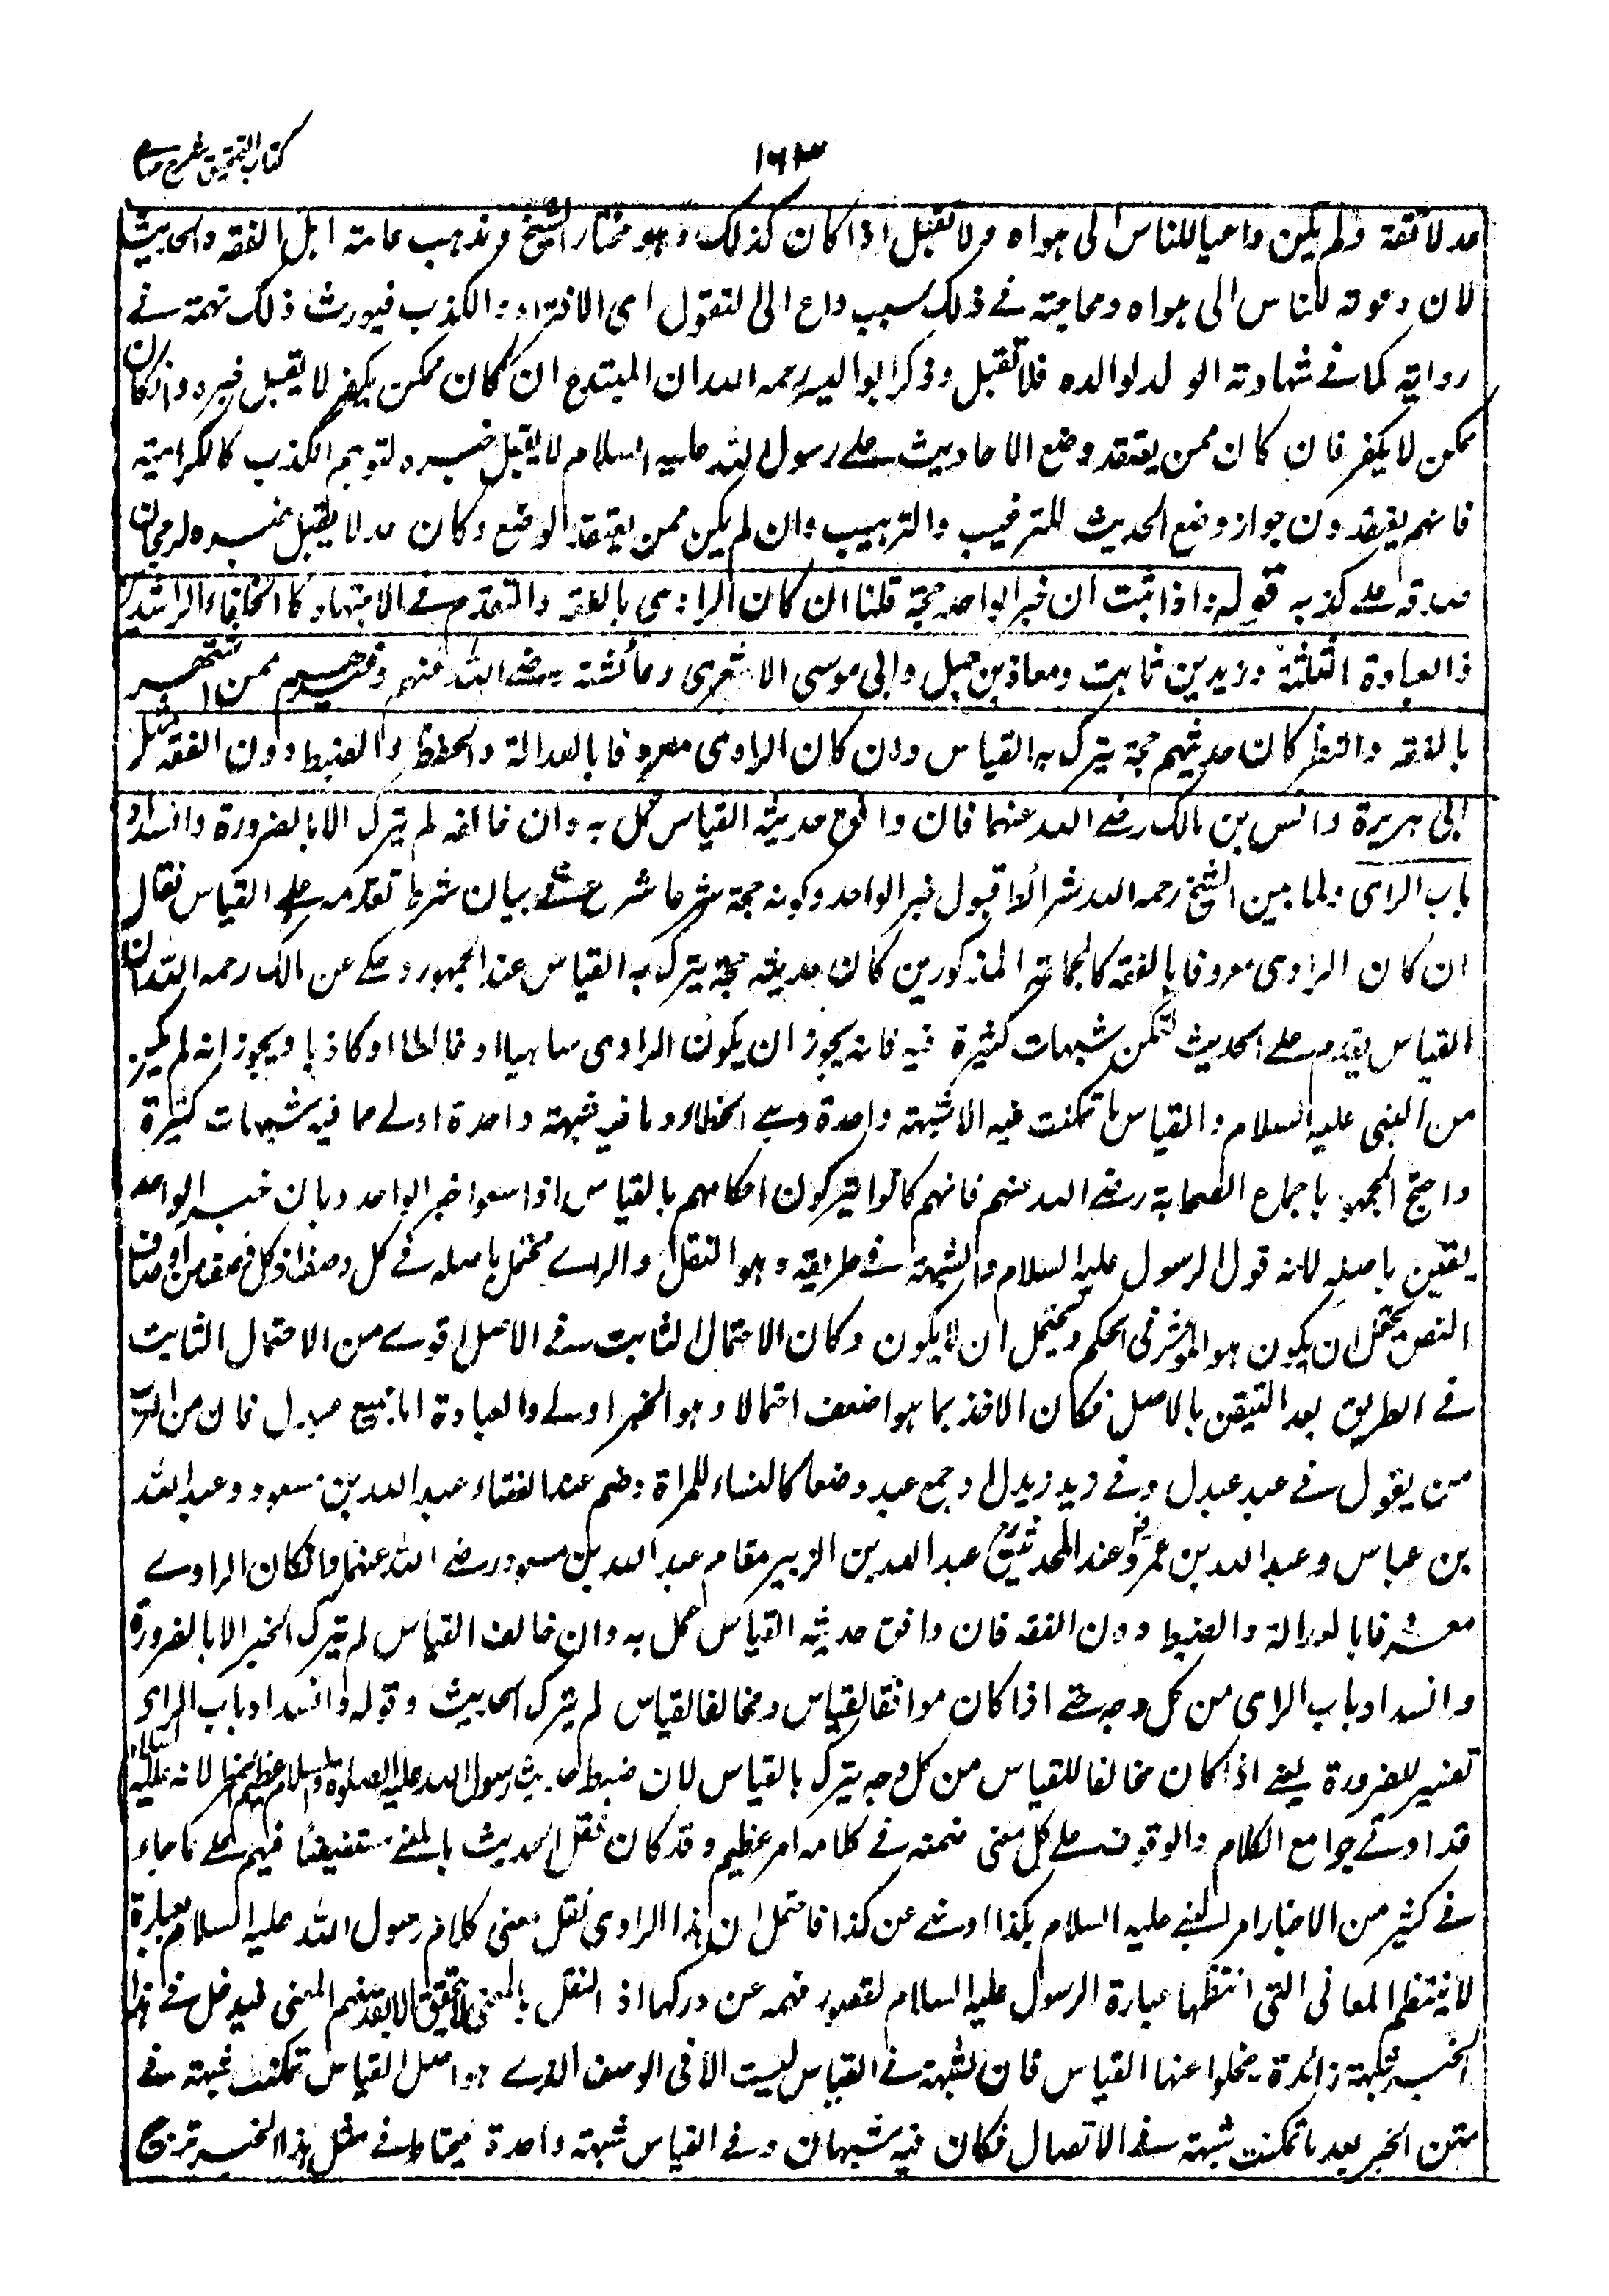 كتاب التحقيق شرح حسامي
١٦٣
عدلا ثقة ولم يكن داعيا للناس الى هواه ولا تقبل اذا كان كذلك وهو مختار الشيخ ومذهب عامة اهل الفقه والحديث
لان دعوته للناس الى هواه ومحاجته في ذلك سبب داع الى التقول اى الافتراء والكذب فيورث ذلك تهمة في
روايته كما في شهادته الولد لوالده فلا تقبل وذكر ابو اليسر رحمه الله ان المبتدع ان كان ممكن يكفر لا يقبل خبره وان كان
ممكن لا يكفر فان كان ممن يعتقد وضع الاحاديث على رسول الله عليه السلام لا يقبل خبره لتوهم الكذب كالكرامية
فانهم يعتقدون جواز وضع الحديث للترغيب والترهيب وان لم يكن ممن يعتقد الوضع وكان عدلا يقبل خبره لرجحان
صدقه على كذبه قوله واذا ثبت ان خبر الواحد حجة قلنا ان كان الراوى بالفقه والتقدم في الاجتهاد كالخلفاء الراشدين
والعبادة الثلثة وزيد بن ثابت ومعاذ بن جبل وابى موسى الاشعرى وعائشة رضي الله عنهم وغيرهم ممن اشتهر
بالفقه والنظر كان حديثهم حجة يترك به القياس وان كان الراوى معروفا بالعدالة والحفظ والضبط دون الفقه مثل
ابى هريرة وانس بن مالك رضي الله عنهما فان وافق حديثه القياس عمل به وان خالفه لم يترك الا بالضرورة وانسداد
باب الراى ولما بين الشيخ رحمه الله شرائط قبول خبر الواحد وكونه حجة شرعا شرع في بيان شرط تقدمه على القياس فقال
ان كان الراوى معروفا بالفقه كالجماعة المذكورين كان حديثه حجة يترك به القياس عند الجمهور وحكي عن مالك رحمه الله ان
القياس يقدم على الحديث لتمكن شبهات كثيرة فيه فانه يجوز ان يكون الراوى ساهيا او غالطا او كاذبا ويجوز انه لم يكن
من النبى عليه السلام والقياس ما تمكنت فيه الا شبهة واحدة وهي الخطاء وما فيه شبهة واحدة اولى مما فيه شبهات كثيرة
واحتج الجمهور باجماع الصحابة رضي الله عنهم فانهم كانوا يتركون احكامهم بالقياس اذا سمعوا خبر الواحد وبان خبر الواحد
يقين باصله لانه قول الرسول عليه السلام والشبهة في طريقه وهو النقل والراى محتمل باصله في كل وصف اذ كل وصف من اوصاف
النص يحتمل ان يكون هو المؤثر فى الحكم ويحتمل ان لا يكون وكان الاحتمال الثابت في الاصل اقوى من الاحتمال الثابت
في الطريق بعد التيقن بالاصل فكان الاخذ بما هو اضعف احتمالا وهو الخبر اولى والعبادة اما جمع عبدل فان من العرب
من يقول في عبد عبدل وفي زيد زيدل او جمع عبد وضعا كالنساء للمراة وهم عند الفقهاء عبد الله بن مسعود وعبد الله
بن عباس وعبد الله بن عمر وعند المحدثين عبد الله بن الزبير مقام عبد الله بن مسعود رضي الله عنهما وان كان الراوي
معروفا بالعدالة والضبط دون الفقه فان وافق حديثه القياس عمل به وان خالف القياس لم يترك الخبر الا بالضرورة
وانسداد باب الراى من كل وجه حتى اذا كان موافقا لقياس ومخالفا لقياس لم يترك الحديث وقوله وانسداد باب الراى
تفسير للضرورة يعني اذا كان مخالفا للقياس من كل وجه يترك بالقياس لان ضبط حديث رسول الله عليه الصلوة والسلام عظيم الخطر لانه عليه السلام
قد اوتي جوامع الكلام والوقوف على كل معنى ضمنه في كلامه امر عظيم وقد كان نقل الحديث بالمعنى مستفيضا فيهم على ما جاء
في كثير من الاخبار امر النبي عليه السلام بكذا او نهى عن كذا فاحتمل ان هذا الراوى نقل معنى كلام رسول الله عليه السلام بعبارة
لا ينتظم المعانى التى انتظمها عبارة الرسول عليه السلام لقصور فهمه عن دركها اذ النقل بالمعنى لا يتحقق الا بقدر فهم المعنى فيدخل في هذا
الخبر شبهة زائدة يخلوا عنها القياس فان الشبهة في القياس ليست الا فى الوصف الذي هو اصل القياس وتمكنت شبهة في
متن الخبر بعد ما تمكنت شبهة في الاتصال فكان فيه شبهتان وفي القياس شبهة واحدة فيحتاط في مثل هذا الخبر ترجيح